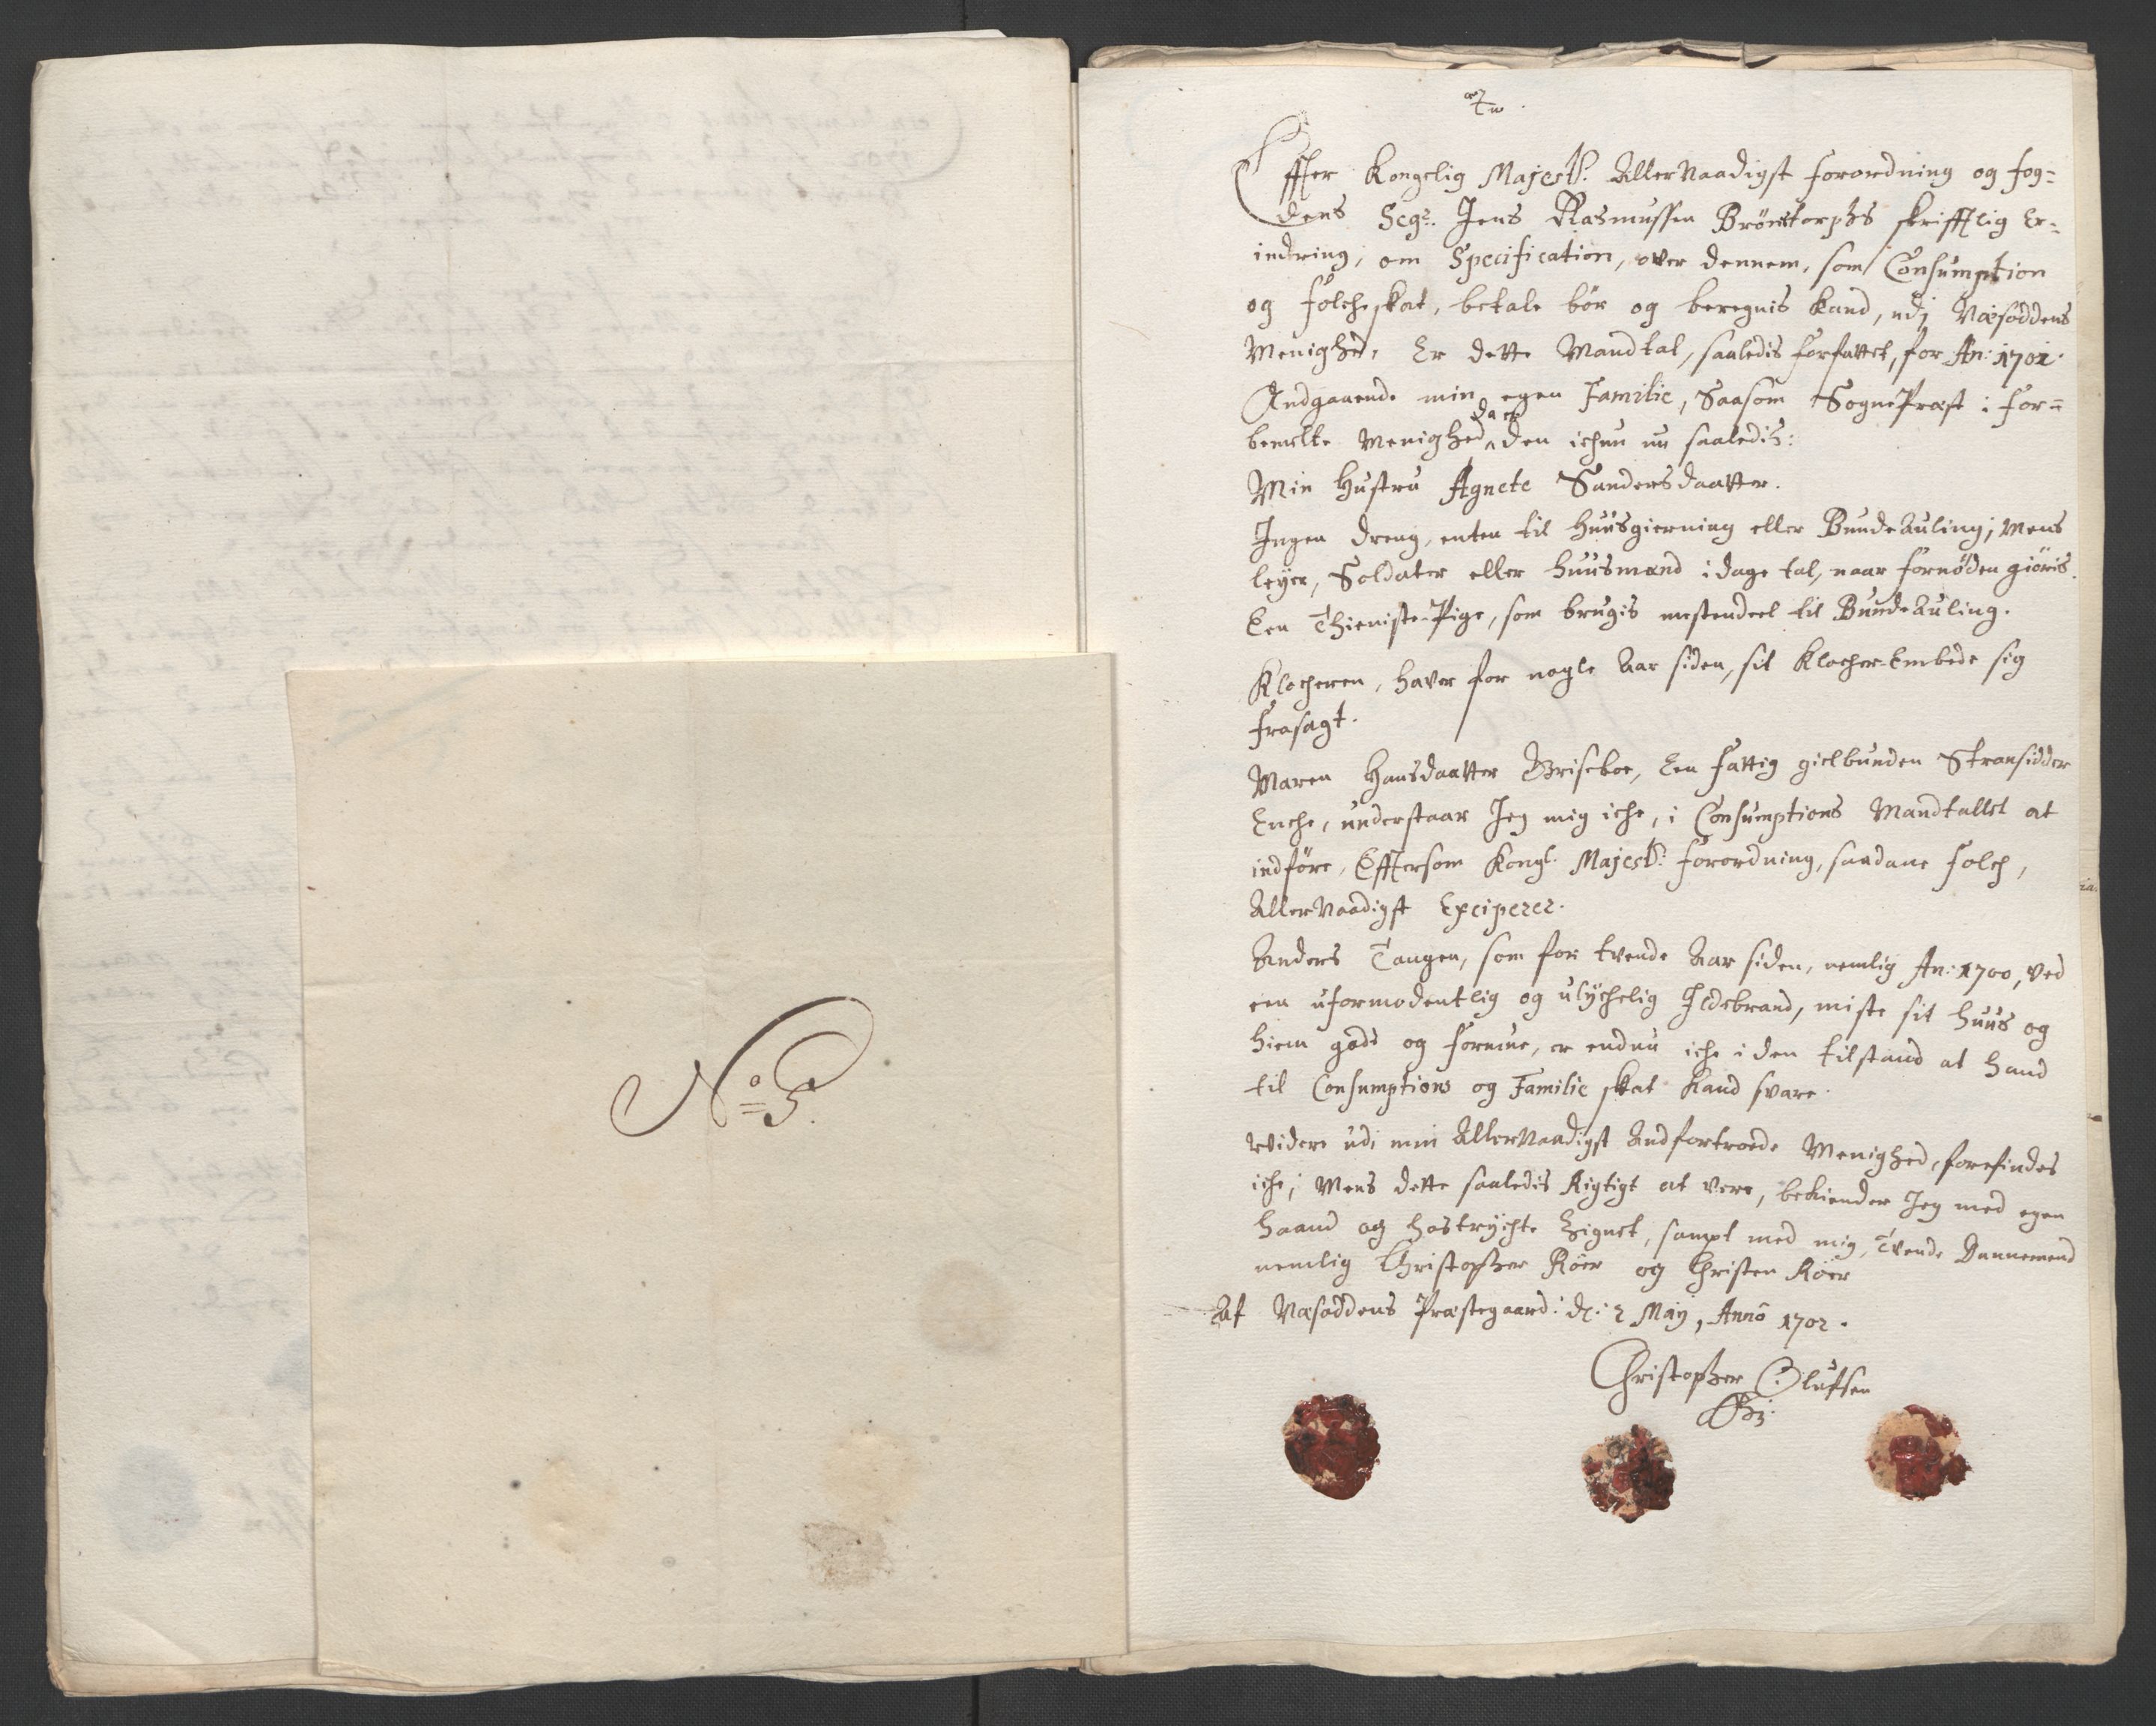 No 5.
Effter Kongelig Majestt. Allernaadigst forordning og fog=
dens Sgr. Jens Rasmussen Brønstorphs skrifftlig Er=
indring, om Specification, over dennem, som Consumption
og folcheskat, betale bør og beregnis kand, udj Næsoddens
Menighed, Er dette Mandtal, saaledis forfattet, for An: 1702.
Andgaaende min egen Familie, Saasom SognePræst i for=
bemelte Menighed, da er den ichun nu saaledis:
Min Hustru Agnete Sandersdaatter.
Ingen dreng, enten til huusgierning eller BundeAuling; Mens
leyer, Soldater eller huusmænd i dage tal, naar fornøden giøris.
Een ThienistePige, som brugis mestendeel til BundeAuling.
Klocheren, haver for nogle Aar siden, sit Klocher-Embede sig
frasagt.
Maren Hansdaatter Griseboe, Een fattig gielbunden Stransidder
Enche, understaar Jeg mig iche, i Consumptions Mandtallet at
indføre, Efftersom Kongl. Majestt. forordning, saadane folch,
Allernaadigst Exciperer.
Anders Tangen, som for tvende Aar siden, nemlig An: 1700, ved
een uformodentlig og ulychelig Ildebrand, miste sit huus og
hiem gods og formue, er endnu iche i den tilstand at hand
til Consumptions og Familie skat kand svare.
Widere udi min Allernaadigst Andfortroede Menighed, forefindes
iche; Mens dette saaledis Rigtigt at vere, bekiender Jeg med egen
haand og hostrychte Zignet, sampt med mig, Tvende Dannemend
nemlig Christopher Röer og Christen Röer
Af Næsoddens Præstegaard: d: 2 Maij, Anno 1702.
Christopher Olufsen